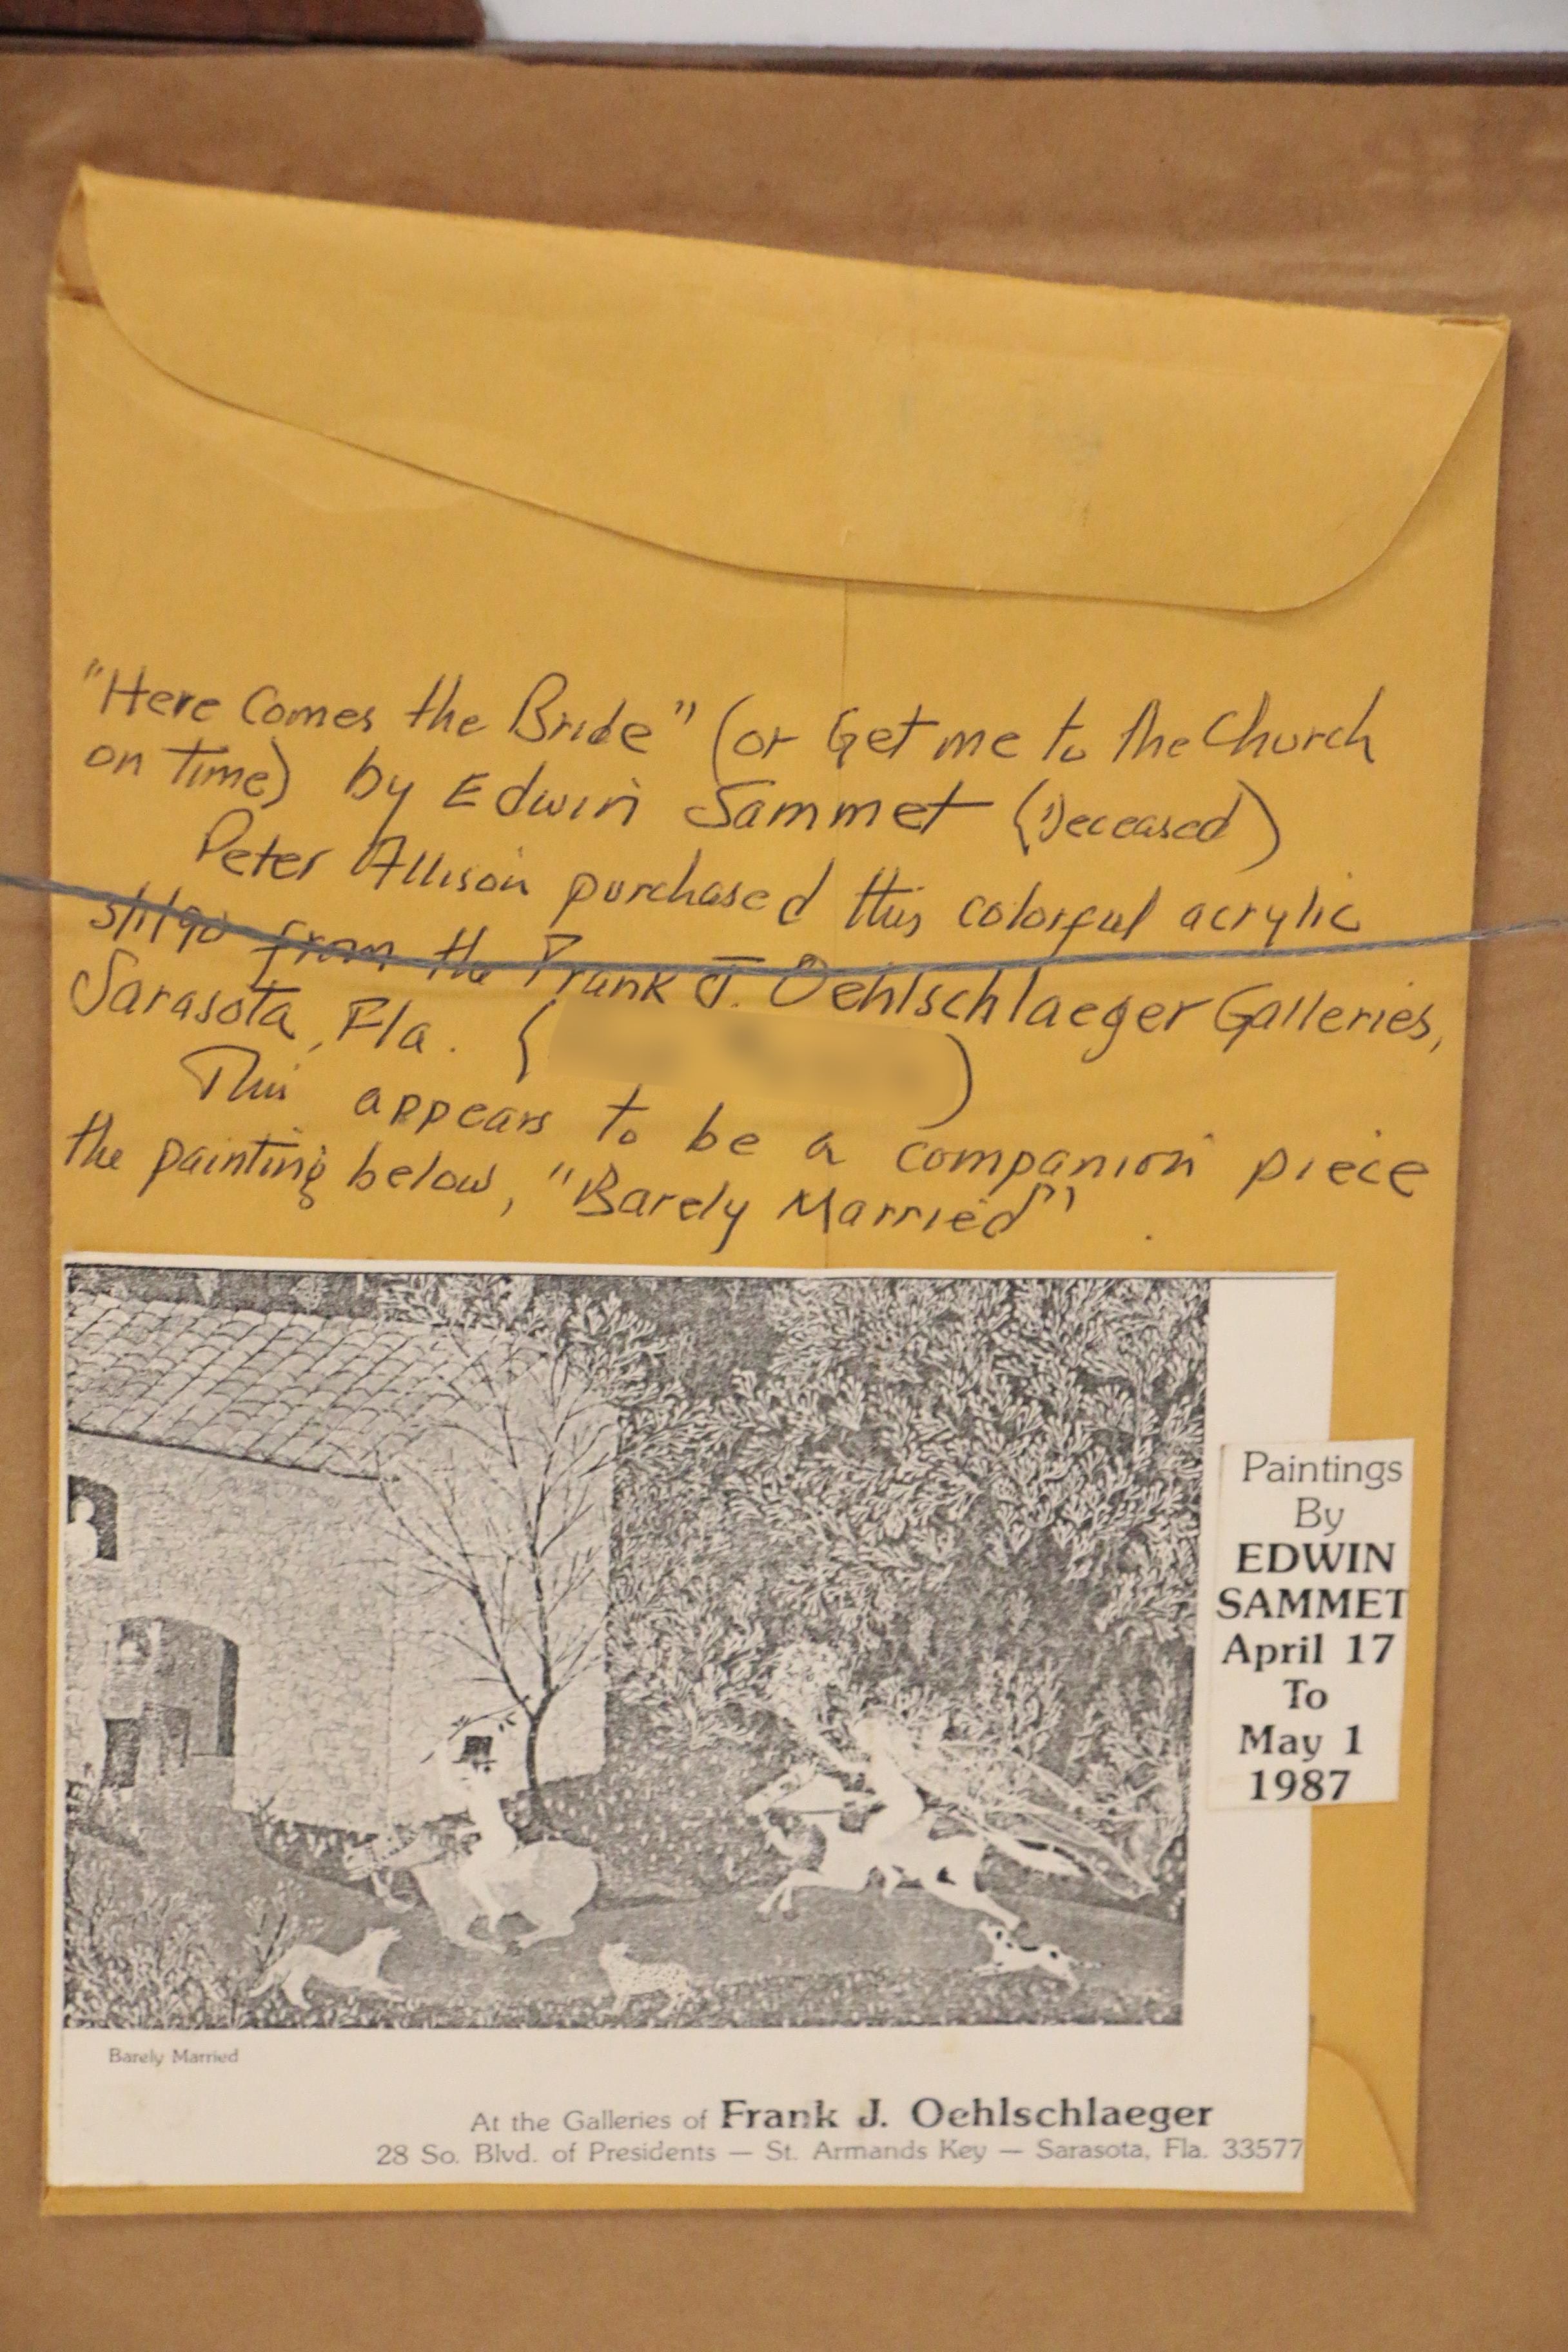 "Here Comes the Bride" (or Get me to the Church
on time) by Edwin Sammet (Deceased)
Peter Allison purchased this colorful acrylic
from the Frank J. Oehlschlaeger Galleries,
Sarasota, Fla. ( )
This appears to be a companion piece
the painting below, "Barely Married".
Paintings
By
EDWIN
SAMMET
April 17
To
May 1
1987
Barely Married
At the Galleries of Frank J. Oehlschlaeger
28 So. Blvd. of Presidents — St. Armands Key — Sarasota, Fla. 33577